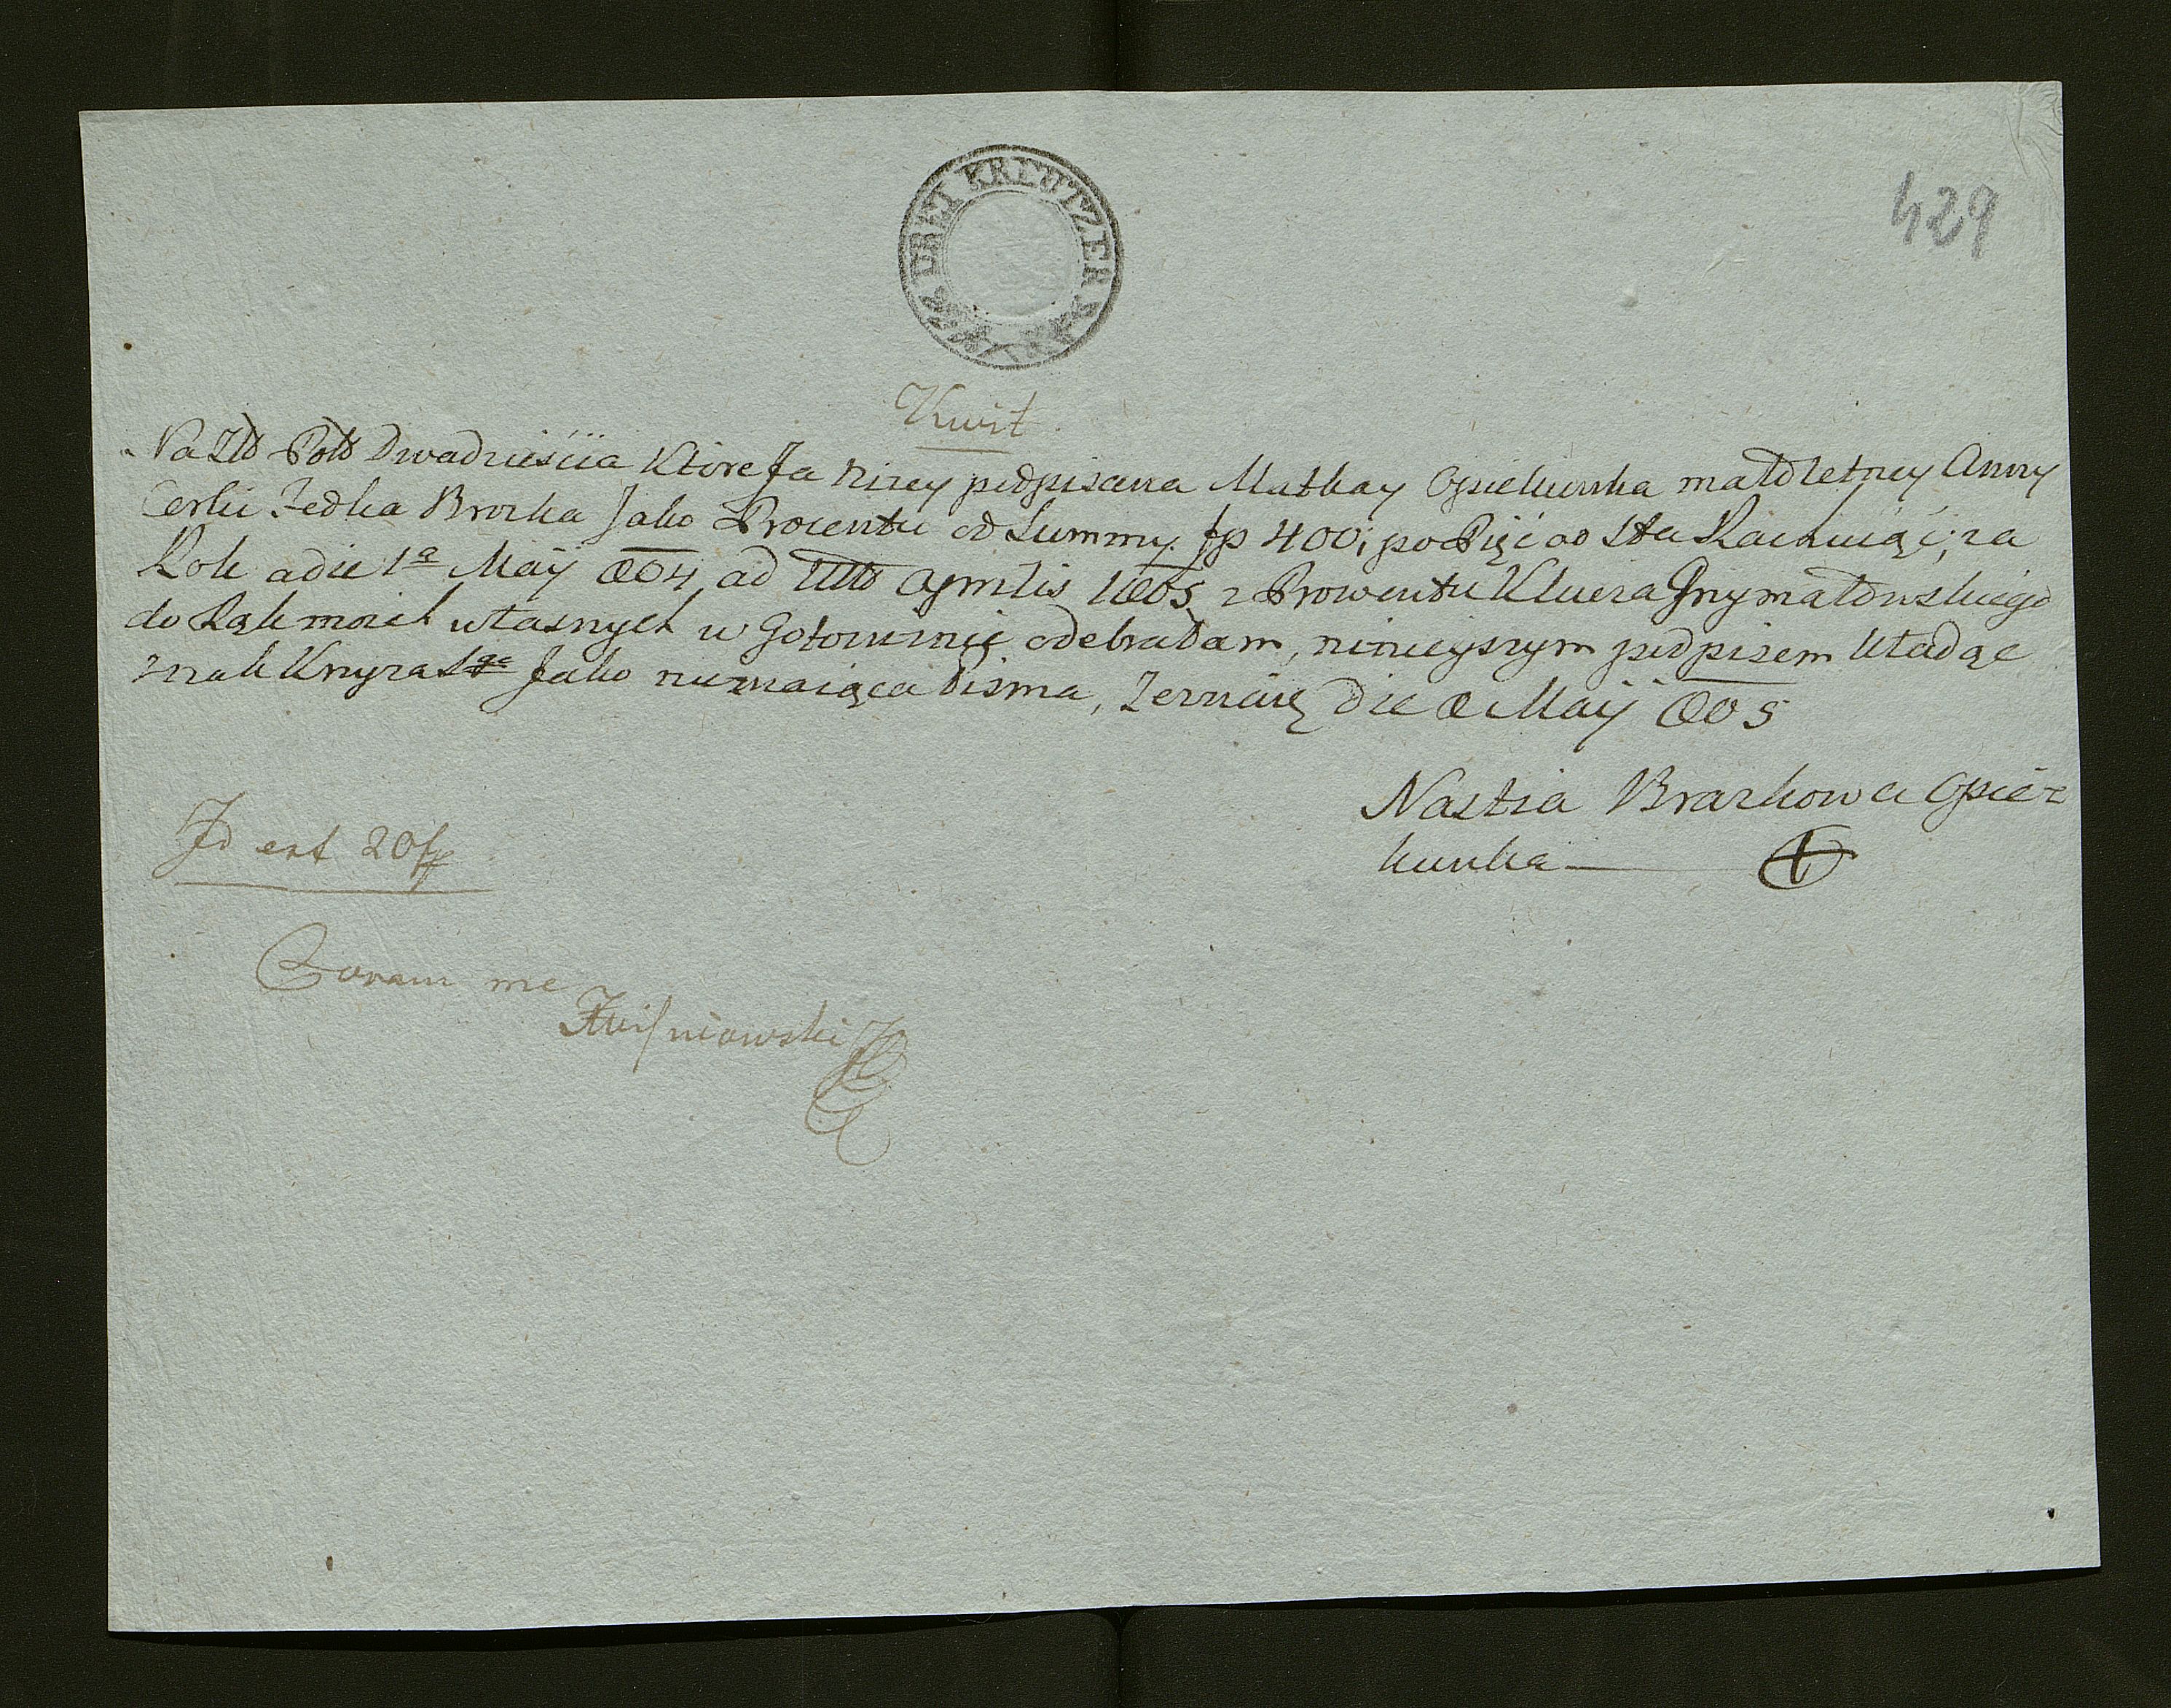 DREI KREUTZER
429
Kwit
Na Złł Polł Dwadzieścia Które Ja niżey podpisana Matka y Opiekunka małoletney Anny
Corki Fedka Brozka Jako Procentu od Summy fp 400; po Pięć od Sta Rachuiąc; za
Rok a die 1a Maÿ 804 ad Ult Aprilis 1805 z Prowentu Klucza Grzymałowskiego
do Rąk moich własnych w Gotowiźnie odebrałam, ninieyszym podpisem kładąc
znak Krzyża Sgo Jako nieznaiąca Pisma, die 8 Maÿ 805
Nastia Brazkowa Opie=
kunka
Id est 20 fp
Coram me